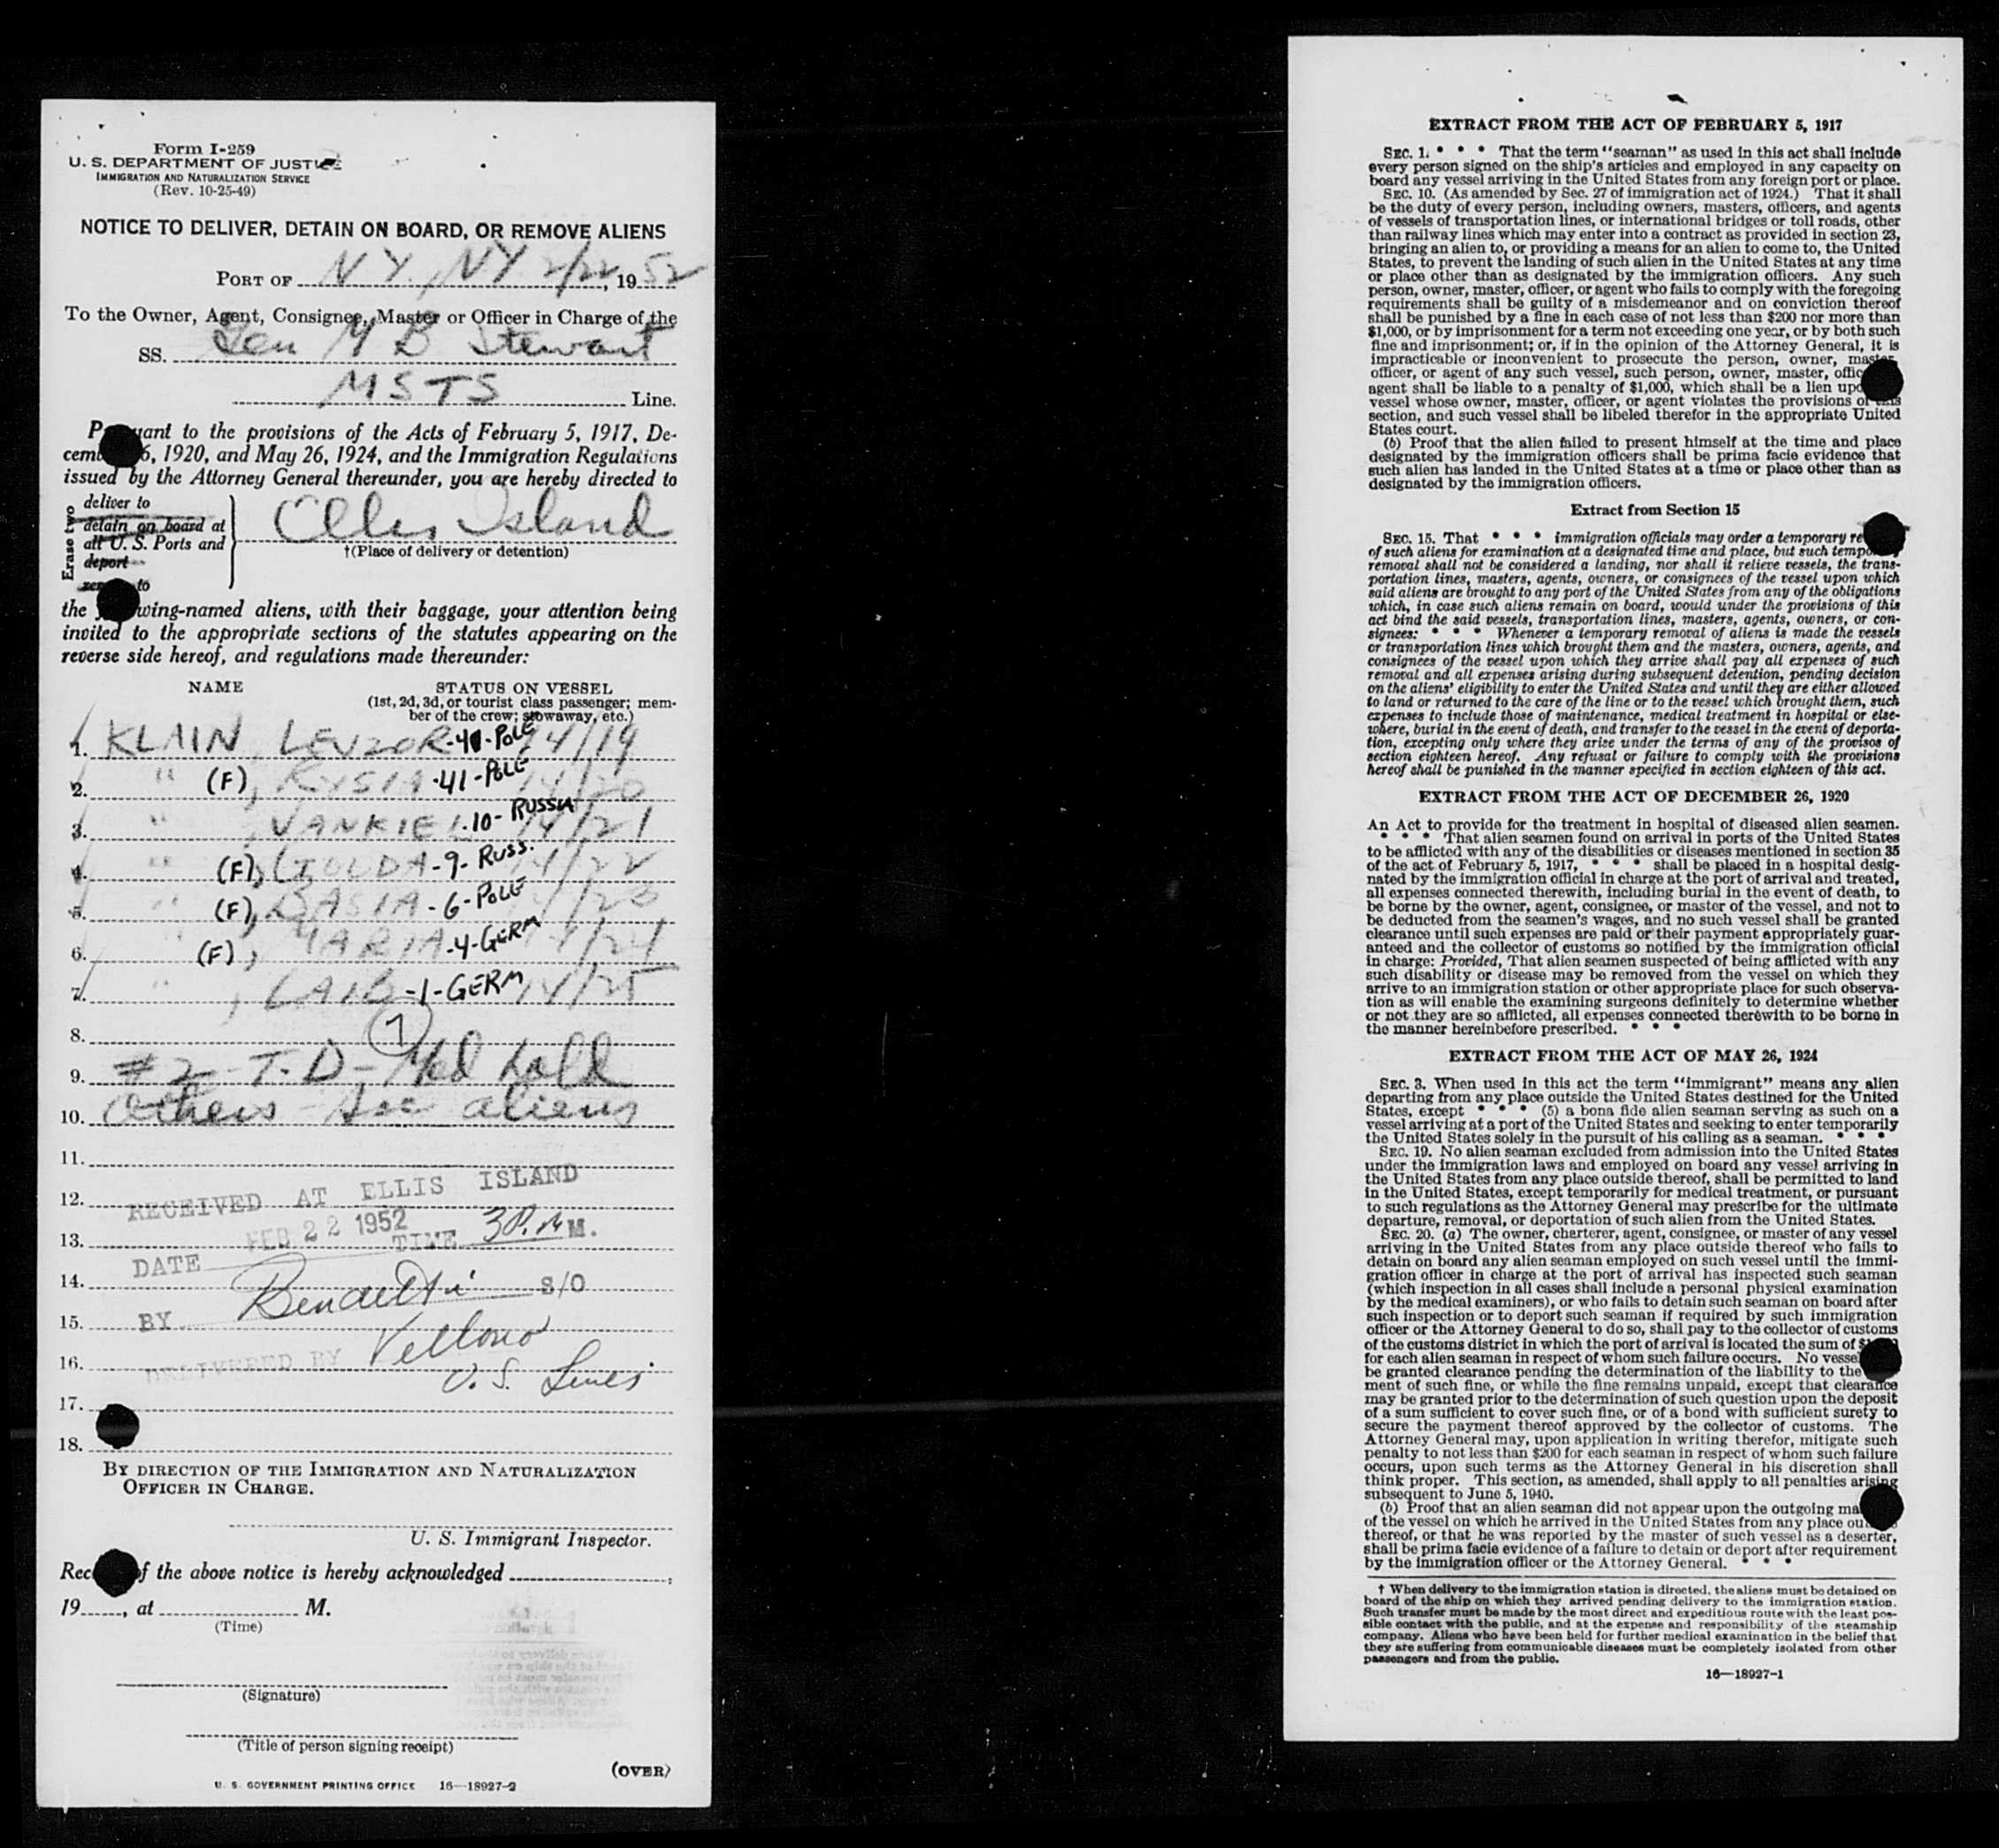 Form I-259
U. S. DEPARTMENT OF JUSTICE
IMMIGRATION AND NATURALIZATION SERVICE
(Rev. 10-25-49)
NOTICE TO DELIVER, DETAIN ON BOARD, OR REMOVE ALIENS
PORT OF N Y, NY 2/22, 1952
To the Owner, Agent, Consignee, Master or Officer in Charge of the
SS. Gen M B Stewart
MSTS Line.
Pursuant to the provisions of the Acts of February 5, 1917, De-
cember 26, 1920, and May 26, 1924, and the Immigration Regulations
issued by the Attorney General thereunder, you are hereby directed to
Erase two
deliver to
detain on board at
all U. S. Ports and
deport
remove to
Ellis Island
†(Place of delivery or detention)
the following-named aliens, with their baggage, your attention being
invited to the appropriate sections of the statutes appearing on the
reverse side hereof, and regulations made thereunder:
NAME STATUS ON VESSEL
(1st, 2d, 3d, or tourist class passenger; mem-
ber of the crew; stowaway, etc.)
1. KLAIN, LEVZOR-41-POLE 14/19
2. " (F), RYSIA-41-POLE 14/20
3. " , YANKIEL-10-RUSSIA 14/21
4. " (F), -9-RUSS. 14/22
5. " (F), BASIA-6-POLE 14/23
6. " (F), MARIA-4-GERM 14/24
7. " , LAIB-1-GERM 14/25
8. 7
9. #2-T.D-Med hold
10. Others - Acc aliens
11.
12. RECEIVED AT ELLIS ISLAND
13. DATE FEB 22 1952 TIME 3 P.M M.
14. BY Benedetti S/O
15. Vellono
16. DELIVERED BY U. S. Lines
17.
18.
BY DIRECTION OF THE IMMIGRATION AND NATURALIZATION
OFFICER IN CHARGE.
U. S. Immigrant Inspector.
Receipt of the above notice is hereby acknowledged ,
19 , at M.
(Time)
(Signature)
(Title of person signing receipt)
(OVER)
U. S. GOVERNMENT PRINTING OFFICE 16—18927-2
EXTRACT FROM THE ACT OF FEBRUARY 5, 1917
SEC. 1. * * * That the term "seaman" as used in this act shall include
every person signed on the ship's articles and employed in any capacity on
board any vessel arriving in the United States from any foreign port or place.
SEC. 10. (As amended by Sec. 27 of immigration act of 1924.) That it shall
be the duty of every person, including owners, masters, officers, and agents
of vessels of transportation lines, or international bridges or toll roads, other
than railway lines which may enter into a contract as provided in section 23,
bringing an alien to, or providing a means for an alien to come to, the United
States, to prevent the landing of such alien in the United States at any time
or place other than as designated by the immigration officers. Any such
person, owner, master, officer, or agent who fails to comply with the foregoing
requirements shall be guilty of a misdemeanor and on conviction thereof
shall be punished by a fine in each case of not less than $200 nor more than
$1,000, or by imprisonment for a term not exceeding one year, or by both such
fine and imprisonment; or, if in the opinion of the Attorney General, it is
impracticable or inconvenient to prosecute the person, owner, master,
officer, or agent of any such vessel, such person, owner, master, officer, or
agent shall be liable to a penalty of $1,000, which shall be a lien upon the
vessel whose owner, master, officer, or agent violates the provisions of this
section, and such vessel shall be libeled therefor in the appropriate United
States court.
(b) Proof that the alien failed to present himself at the time and place
designated by the immigration officers shall be prima facie evidence that
such alien has landed in the United States at a time or place other than as
designated by the immigration officers.
Extract from Section 15
SEC. 15. That * * * immigration officials may order a temporary removal
of such aliens for examination at a designated time and place, but such temporary
removal shall not be considered a landing, nor shall it relieve vessels, the trans-
portation lines, masters, agents, owners, or consignees of the vessel upon which
said aliens are brought to any port of the United States from any of the obligations
which, in case such aliens remain on board, would under the provisions of this
act bind the said vessels, transportation lines, masters, agents, owners, or con-
signees: * * * Whenever a temporary removal of aliens is made the vessels
or transportation lines which brought them and the masters, owners, agents, and
consignees of the vessel upon which they arrive shall pay all expenses of such
removal and all expenses arising during subsequent detention, pending decision
on the aliens' eligibility to enter the United States and until they are either allowed
to land or returned to the care of the line or to the vessel which brought them, such
expenses to include those of maintenance, medical treatment in hospital or else-
where, burial in the event of death, and transfer to the vessel in the event of deporta-
tion, excepting only where they arise under the terms of any of the provisos of
section eighteen hereof. Any refusal or failure to comply with the provisions
hereof shall be punished in the manner specified in section eighteen of this act.
EXTRACT FROM THE ACT OF DECEMBER 26, 1920
An Act to provide for the treatment in hospital of diseased alien seamen.
* * * That alien seamen found on arrival in ports of the United States
to be afflicted with any of the disabilities or diseases mentioned in section 35
of the act of February 5, 1917, * * * shall be placed in a hospital desig-
nated by the immigration official in charge at the port of arrival and treated,
all expenses connected therewith, including burial in the event of death, to
be borne by the owner, agent, consignee, or master of the vessel, and not to
be deducted from the seamen's wages, and no such vessel shall be granted
clearance until such expenses are paid or their payment appropriately guar-
anteed and the collector of customs so notified by the immigration official
in charge: Provided, That alien seamen suspected of being afflicted with any
such disability or disease may be removed from the vessel on which they
arrive to an immigration station or other appropriate place for such observa-
tion as will enable the examining surgeons definitely to determine whether
or not they are so afflicted, all expenses connected therewith to be borne in
the manner hereinbefore prescribed. * * *
EXTRACT FROM THE ACT OF MAY 26, 1924
SEC. 3. When used in this act the term "immigrant" means any alien
departing from any place outside the United States destined for the United
States, except * * * (5) a bona fide alien seaman serving as such on a
vessel arriving at a port of the United States and seeking to enter temporarily
the United States solely in the pursuit of his calling as a seaman. * * *
SEC. 19. No alien seaman excluded from admission into the United States
under the immigration laws and employed on board any vessel arriving in
the United States from any place outside thereof, shall be permitted to land
in the United States, except temporarily for medical treatment, or pursuant
to such regulations as the Attorney General may prescribe for the ultimate
departure, removal, or deportation of such alien from the United States.
SEC. 20. (a) The owner, charterer, agent, consignee, or master of any vessel
arriving in the United States from any place outside thereof who fails to
detain on board any alien seaman employed on such vessel until the immi-
gration officer in charge at the port of arrival has inspected such seaman
(which inspection in all cases shall include a personal physical examination
by the medical examiners), or who fails to detain such seaman on board after
such inspection or to deport such seaman if required by such immigration
officer or the Attorney General to do so, shall pay to the collector of customs
of the customs district in which the port of arrival is located the sum of
for each alien seaman in respect of whom such failure occurs. No vessel
be granted clearance pending the determination of the liability to the
ment of such fine, or while the fine remains unpaid, except that clearance
may be granted prior to the determination of such question upon the deposit
of a sum sufficient to cover such fine, or of a bond with sufficient surety to
secure the payment thereof approved by the collector of customs. The
Attorney General may, upon application in writing therefor, mitigate such
penalty to not less than $200 for each seaman in respect of whom such failure
occurs, upon such terms as the Attorney General in his discretion shall
think proper. This section, as amended, shall apply to all penalties arising
subsequent to June 5, 1940.
(b) Proof that an alien seaman did not appear upon the outgoing manifest
of the vessel on which he arrived in the United States from any place outside
thereof, or that he was reported by the master of such vessel as a deserter,
shall be prima facie evidence of a failure to detain or deport after requirement
by the immigration officer or the Attorney General. * * *
† When delivery to the immigration station is directed, the aliens must be detained on
board of the ship on which they arrived pending delivery to the immigration station.
Such transfer must be made by the most direct and expeditious route with the least pos-
sible contact with the public, and at the expense and responsibility of the steamship
company. Aliens who have been held for further medical examination in the belief that
they are suffering from communicable diseases must be completely isolated from other
passengers and from the public.
16—18927-1